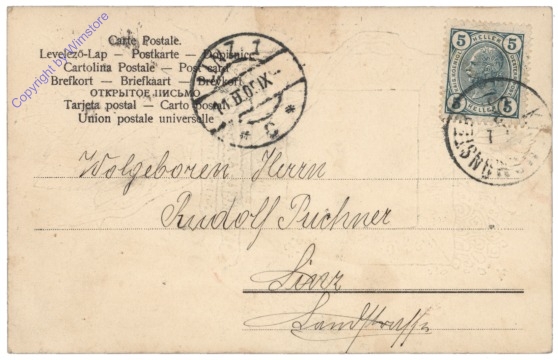 Carte Postale.
Levelező-Lap — Postkarte — Dopisnice
Cartolina Postale — Post card
Brefkort — Briefkaart — Brevkort
ОТКРЫТОЕ ПИСЬМО
Tarjeta postal — Carto postal
Union postale universelle
Copyright by Wimstore
LINZ 1
5 HELLER 5
5 HELLER 5
Wolgeboren Herrn
Rudolf Puchner
Linz
Landstrasse